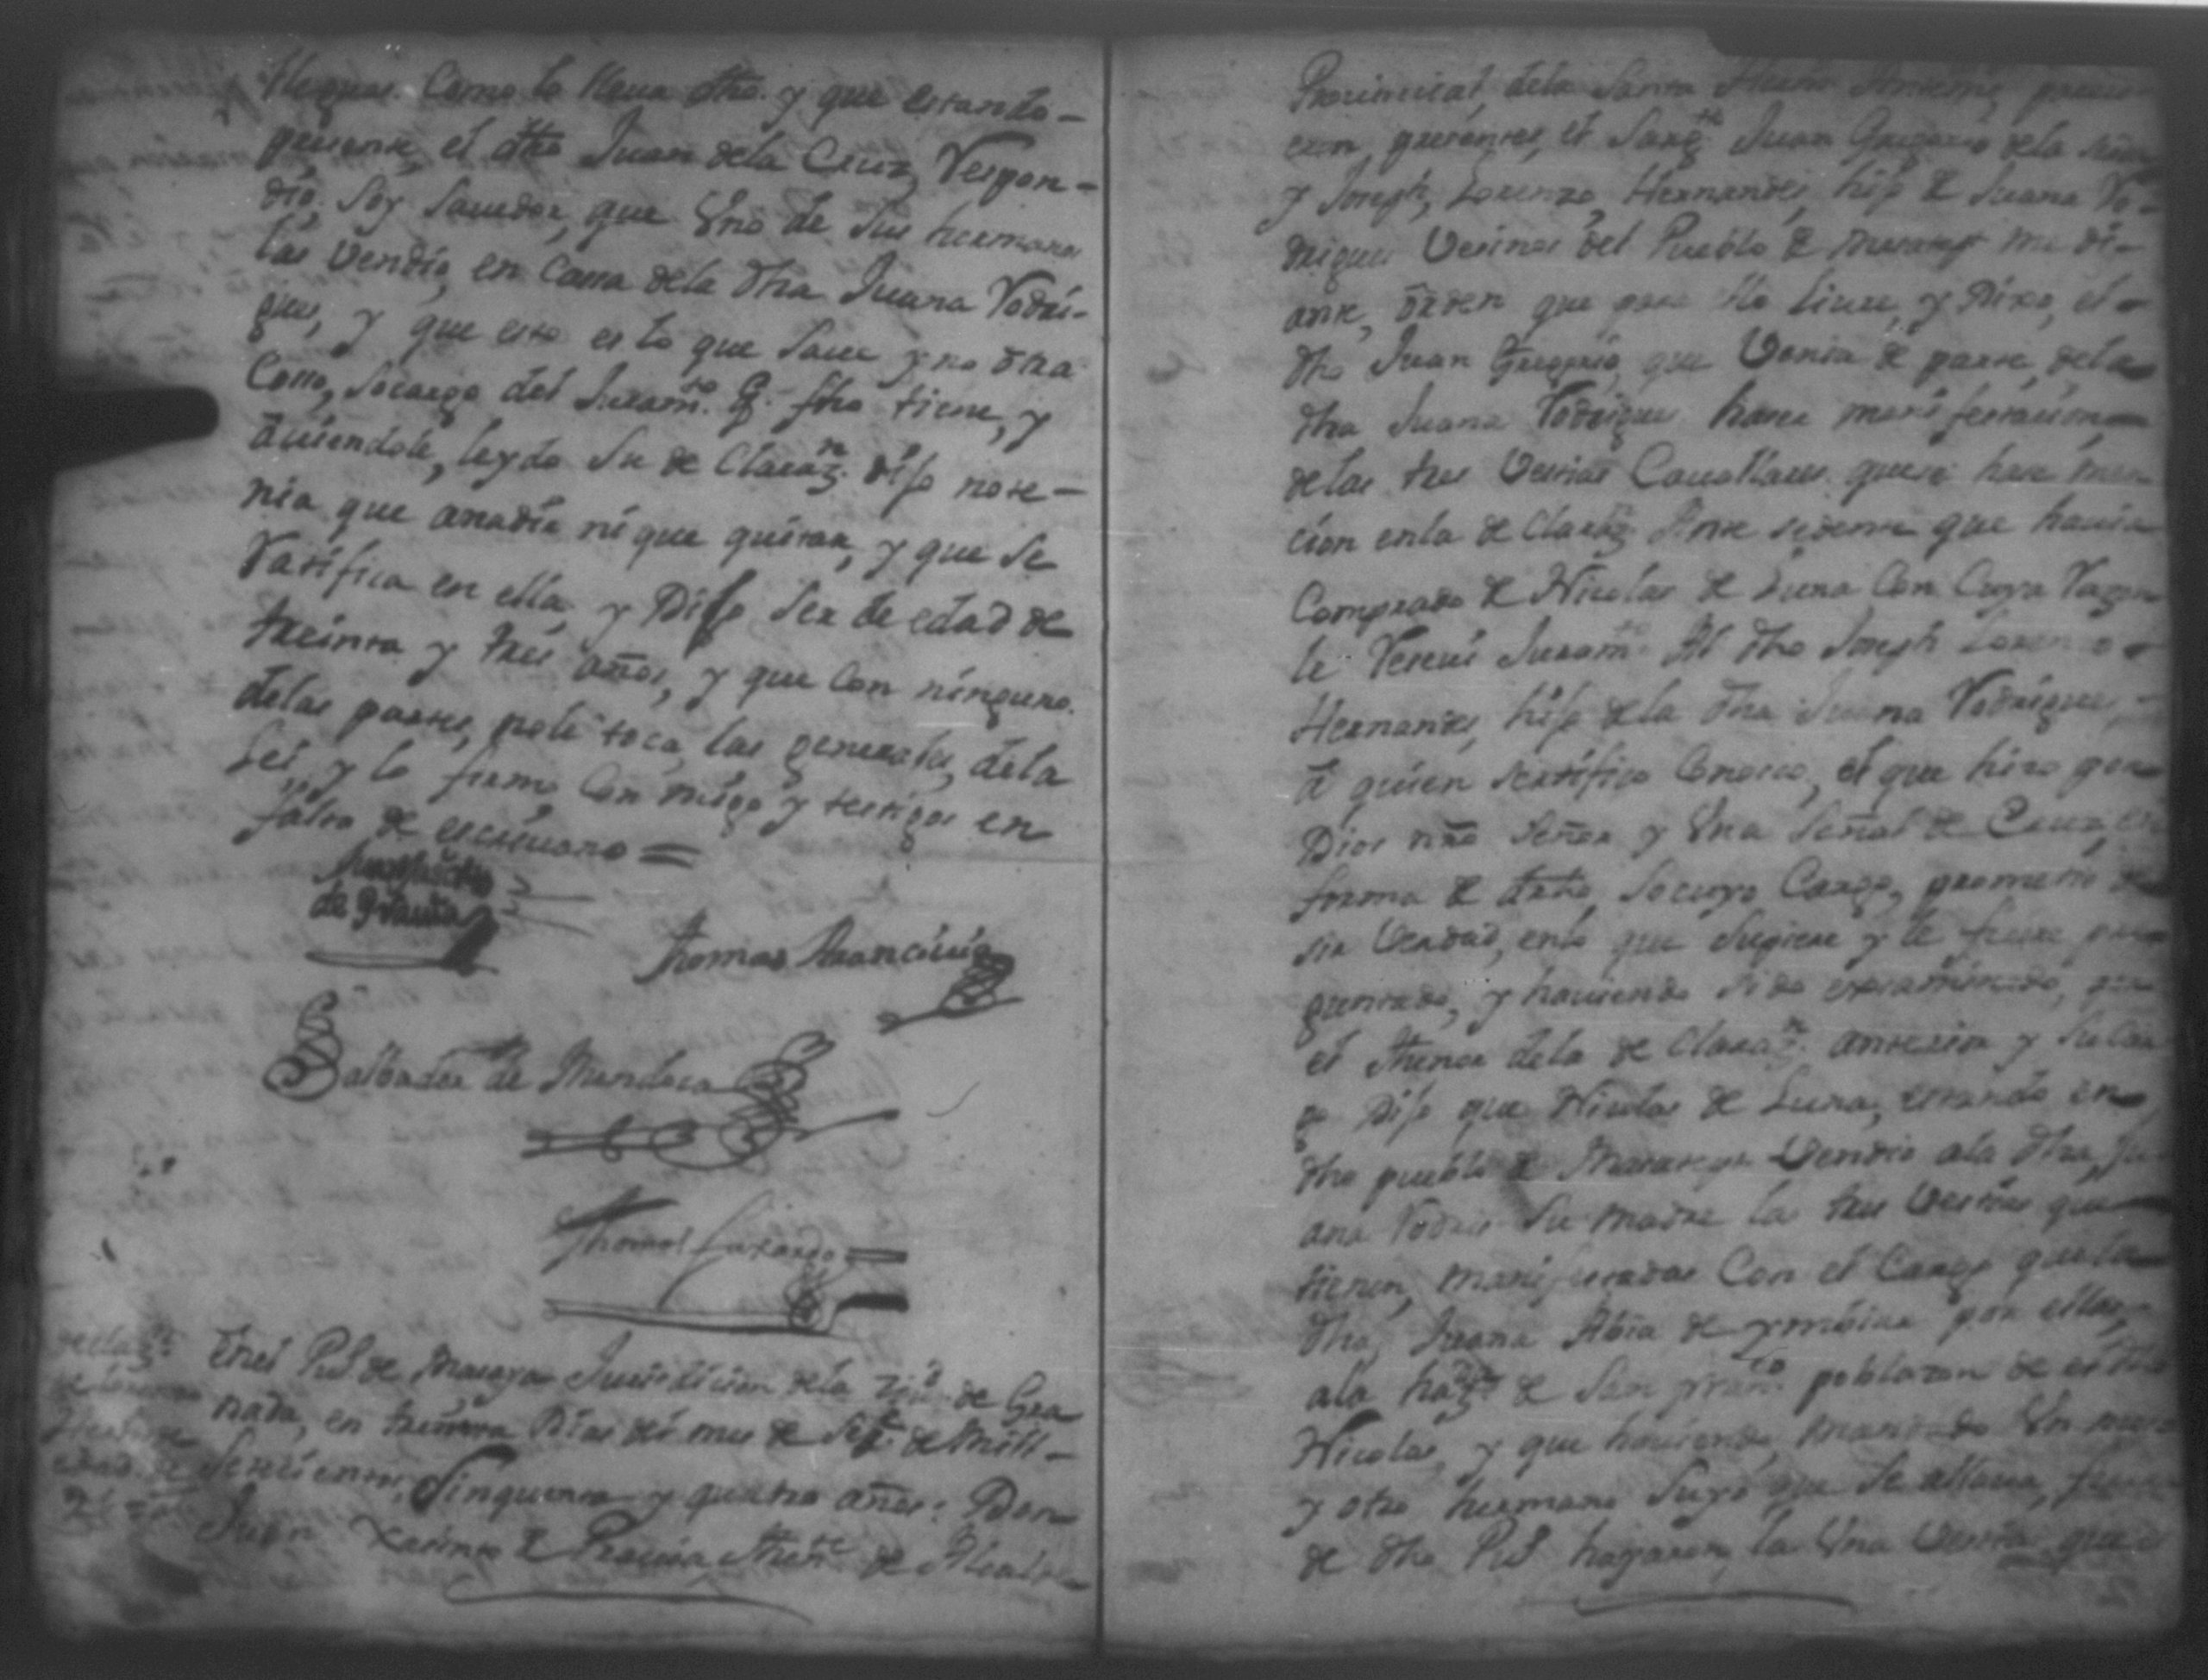 lleguas. Como lo lleua dho. y que estando-
presente, el dho Juan dela Cruz, Respon-
dio. Soy Sauedor, que Uno de Sus hermanos
las Vendio, en Casa dela dha Juana Rodri-
gues, y que esto es lo que Saue y no otra
Cossa, Socargo del Juram.to q. fho tiene, y
auiendole, leydo Su de Claraz.n dijo note-
nia que anadir ni que quitar, y que Se
Ratifica en ella, y Dijo Ser de edad de
treinta y tres años, y que Con ninguno.
delas partes, nole toca, las generales, dela
Lei, y lo firmo Con migo y testigos en
falta de escriuano =
Thomas Aranciuia
Salbador de Mendosa
Thomas
En el Pu.o de Masaya Jurisdicion dela Ziu.d de Gra
nada, en treinta Dias del mes de Sep.e de mill-
Setesientos, Sinquenta y quatro años: Don
Juan de Alcalde
Prouincial, dela Santa
presentes, el Sarg.to Juan Gregorio dela
y Joseph, Lorenzo, Hernandes, hijo de Juana Ro-
drigues Vesinos del Pueblo de me di-
ante, orden que para ello Liure, y Dixo, el
dho Juan Gregorio, que Venia de parte, dela
dha Juana Rodrigues hacer manifestacion
delas tres Vestias Cauallares que se hase men
cion enla de Claraz.n Ante sedente que hauia
Comprado de Nicolas de Luna Con Cuya Razon
le Reseui Juram.to Al dho Joseph Lorenzo
Hernandes, hijo dela dha Juana Rodrigues,
a quien sertifico Conosco, el que hizo por
Dios nro Señor y Una Señal de Cruz, en
forma de drho, Socuyo Cargo, prometio de
sir Verdad, enlo que Supiere y le fuere pre
guntado, y hauiendo sido exsaminado,
el thenor dela de Claraz.n anterior y
Dijo que Nicolas de Luna, estando en
dho pueblo de Vendio ala dha, Ju
ana Rodrig.s Su madre las tres Vestias que
tienen, manifestadas Con el Cargo que la
dha, Juana Abia de ymbiar por ellas,
ala haz.da de San Fran.co poblazon de el dho
Nicolas, y que hauiendo, mandado Un
y otro hermano Suyo que Se allaua,
de dho Pu.o trajaron, la Una Vestia que